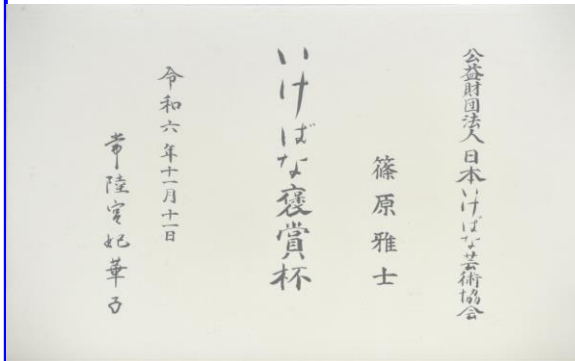 公益財団法人 日本いけばな芸術協会
篠原雅士
いけばな褒賞杯
令和六年十一月十一日
常陸宮妃華子